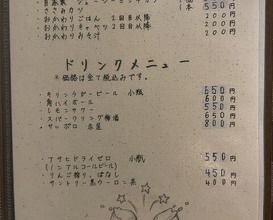 ささみカツ 1本 200円
おかわりごはん 2回目以降 200円
おかわりキャベツ 2回目以降 200円
おかわりみそ汁 200円
ドリンクメニュー
※価格は全て税込みです。
・キリンラガービール 小瓶 550円
・角ハイボール 600円
・レモンサワー 550円
・スパークリング梅酒 650円
・サッポロ 赤星 800円
・アサヒドライゼロ 小瓶 550円
(ノンアルコールビール)
・りんご搾り、はなし 450円
・サントリー黒ウーロン茶 400円